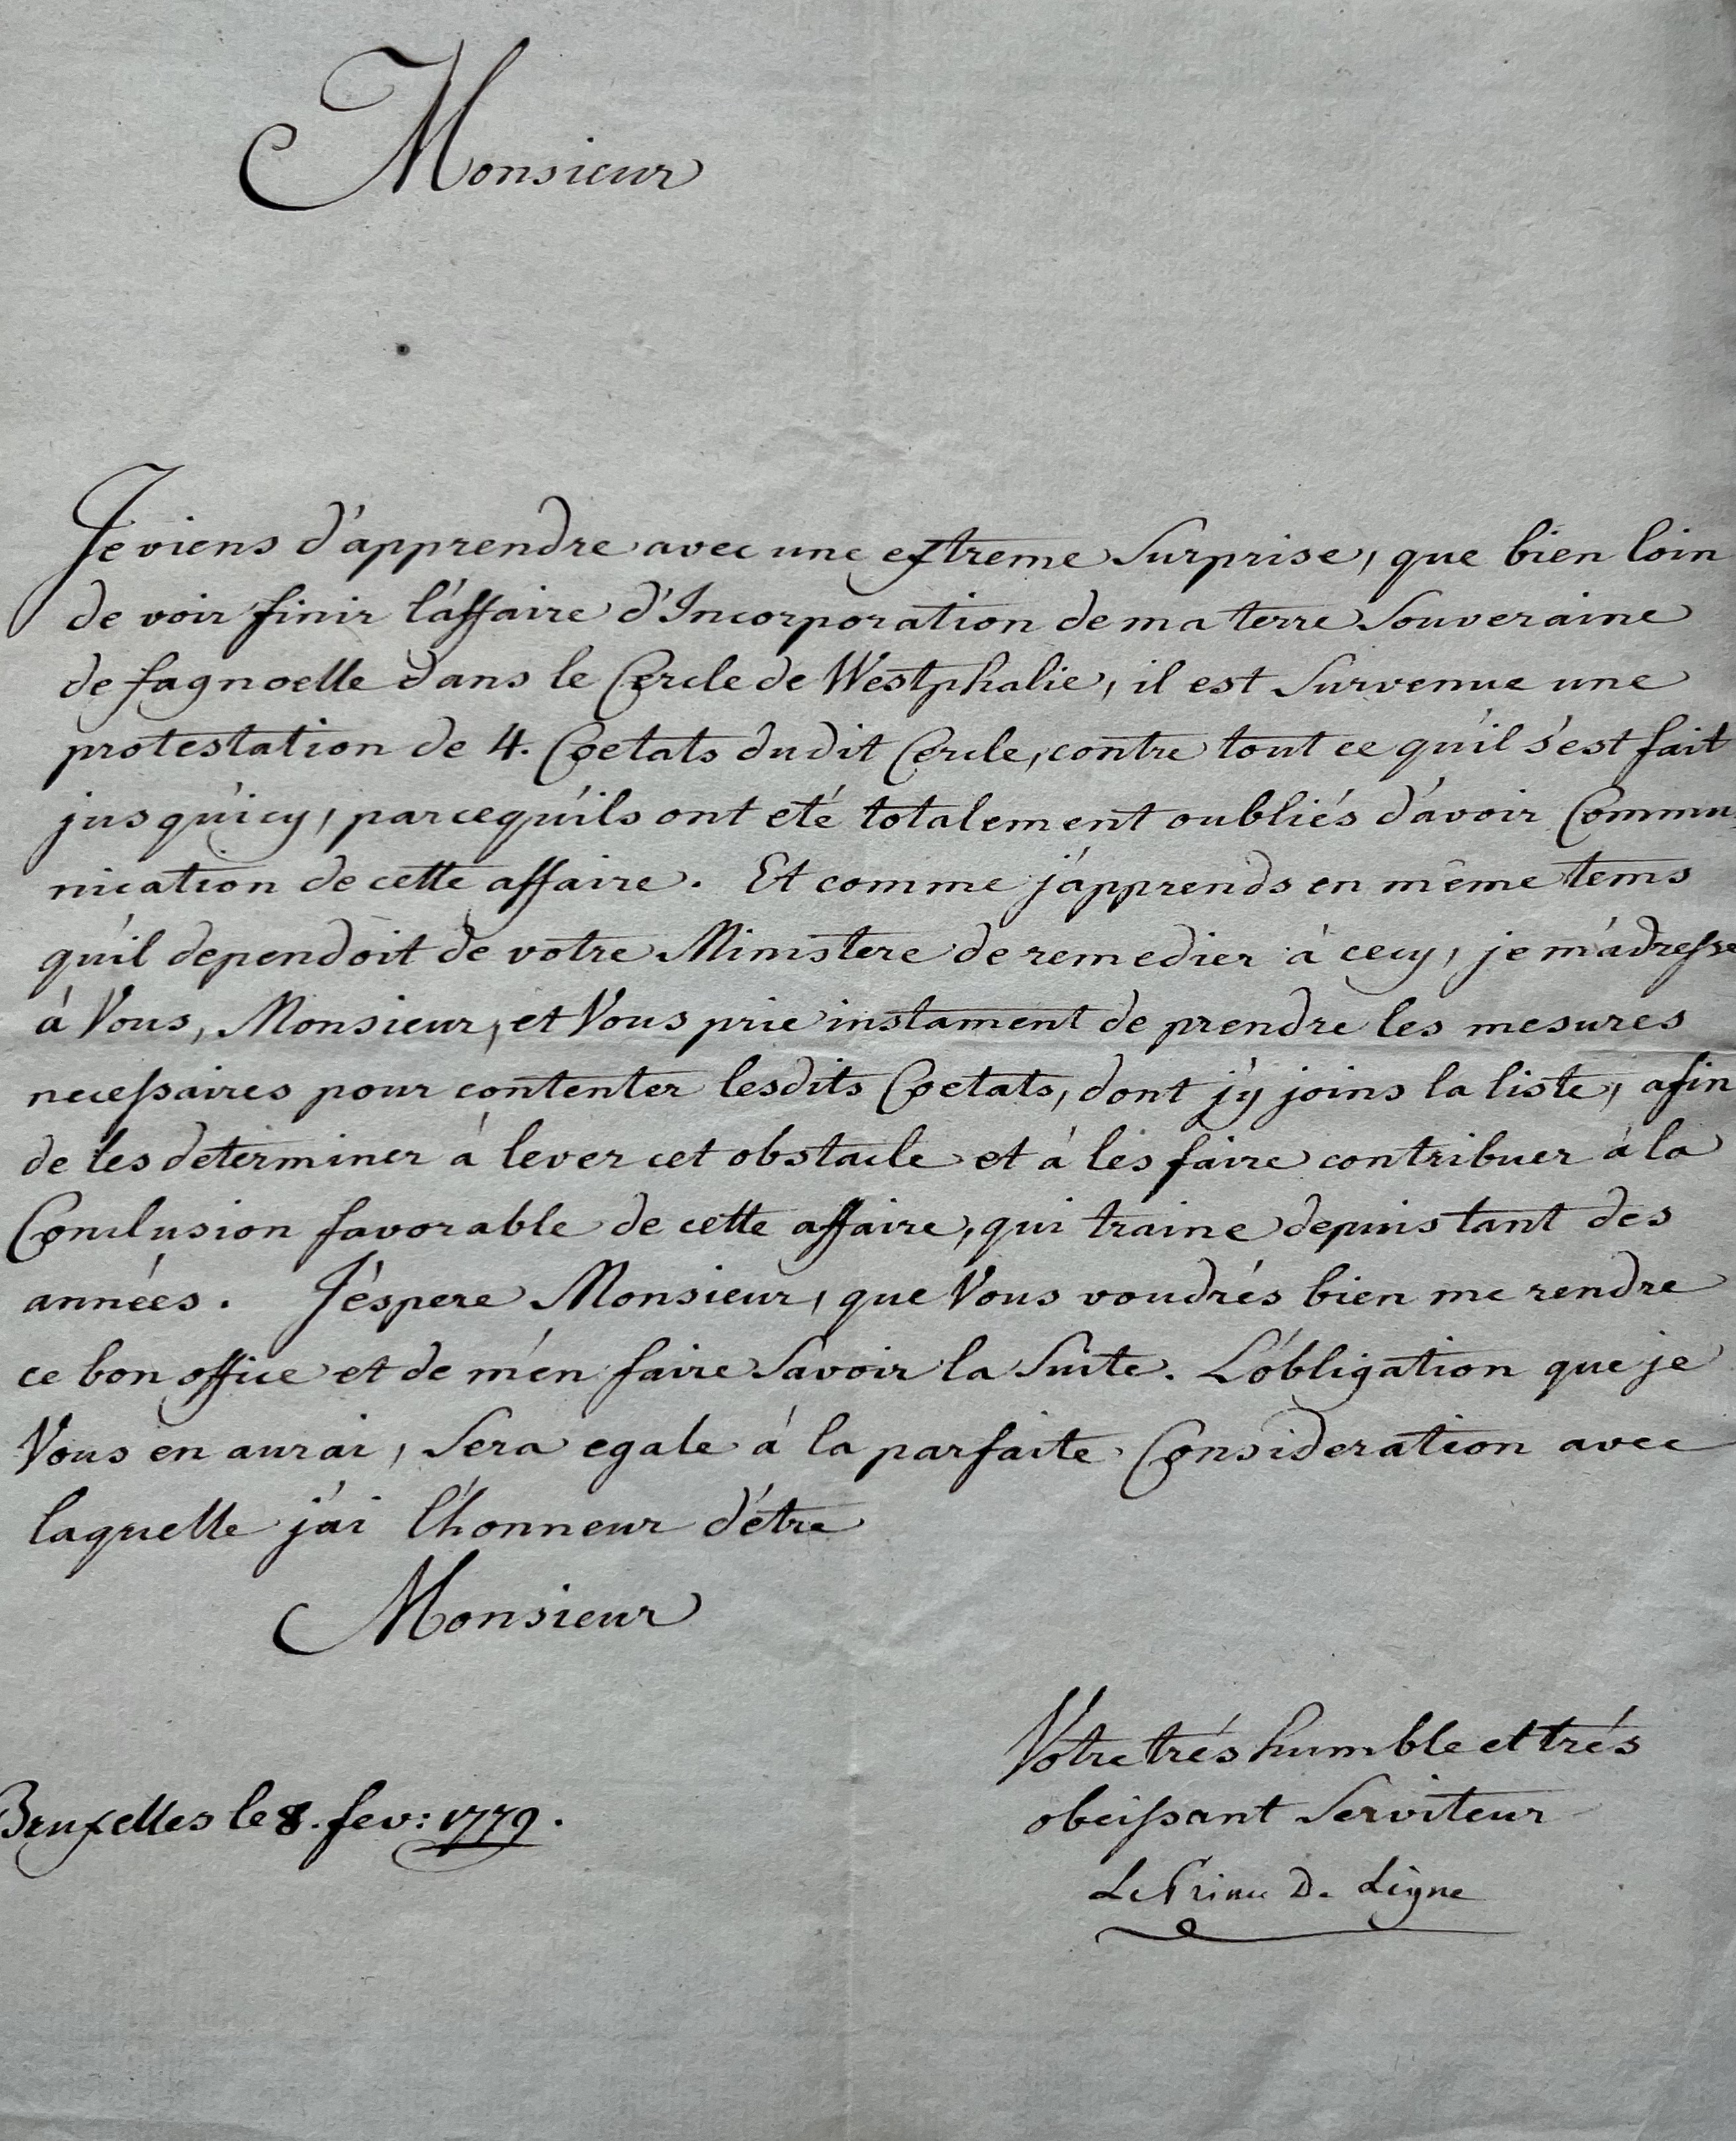 Monsieur
Je viens d'apprendre avec une extreme Surprise, que bien loin
de voir finir l'affaire d'Incorporation de ma terre Souveraine
de fagnoelle dans le Cercle de Westphalie, il est Survenue une
protestation de 4. Coetats dudit Cercle, contre tout ce qu'il s'est fait
jusqu'icy, parcequ'ils ont eté totalement oubliés d'avoir Commu
nication de cette affaire. Et comme j'apprends en même tems
qu'il dependoit de votre Ministere de remedier à cecy, je m'adresse
à Vous, Monsieur, et Vous prie instament de prendre les mesures
necessaires pour contenter lesdits Coetats, dont j'y joins la liste, afin
de les determiner à lever cet obstacle et à les faire contribuer à la
Conclusion favorable de cette affaire, qui traine depuis tant des
années. J'éspere Monsieur, que Vous voudrés bien me rendre
ce bon office et de m'en faire Savoir la Suite. L'obligation que je
Vous en aurai, Sera egale à la parfaite Consideration avec
laquelle j'ai l'honneur d'étre
Monsieur
Votre trés humble et trés
obeissant Serviteur
Bruxelles le 8. fev: 1779.
Le Prince De Ligne